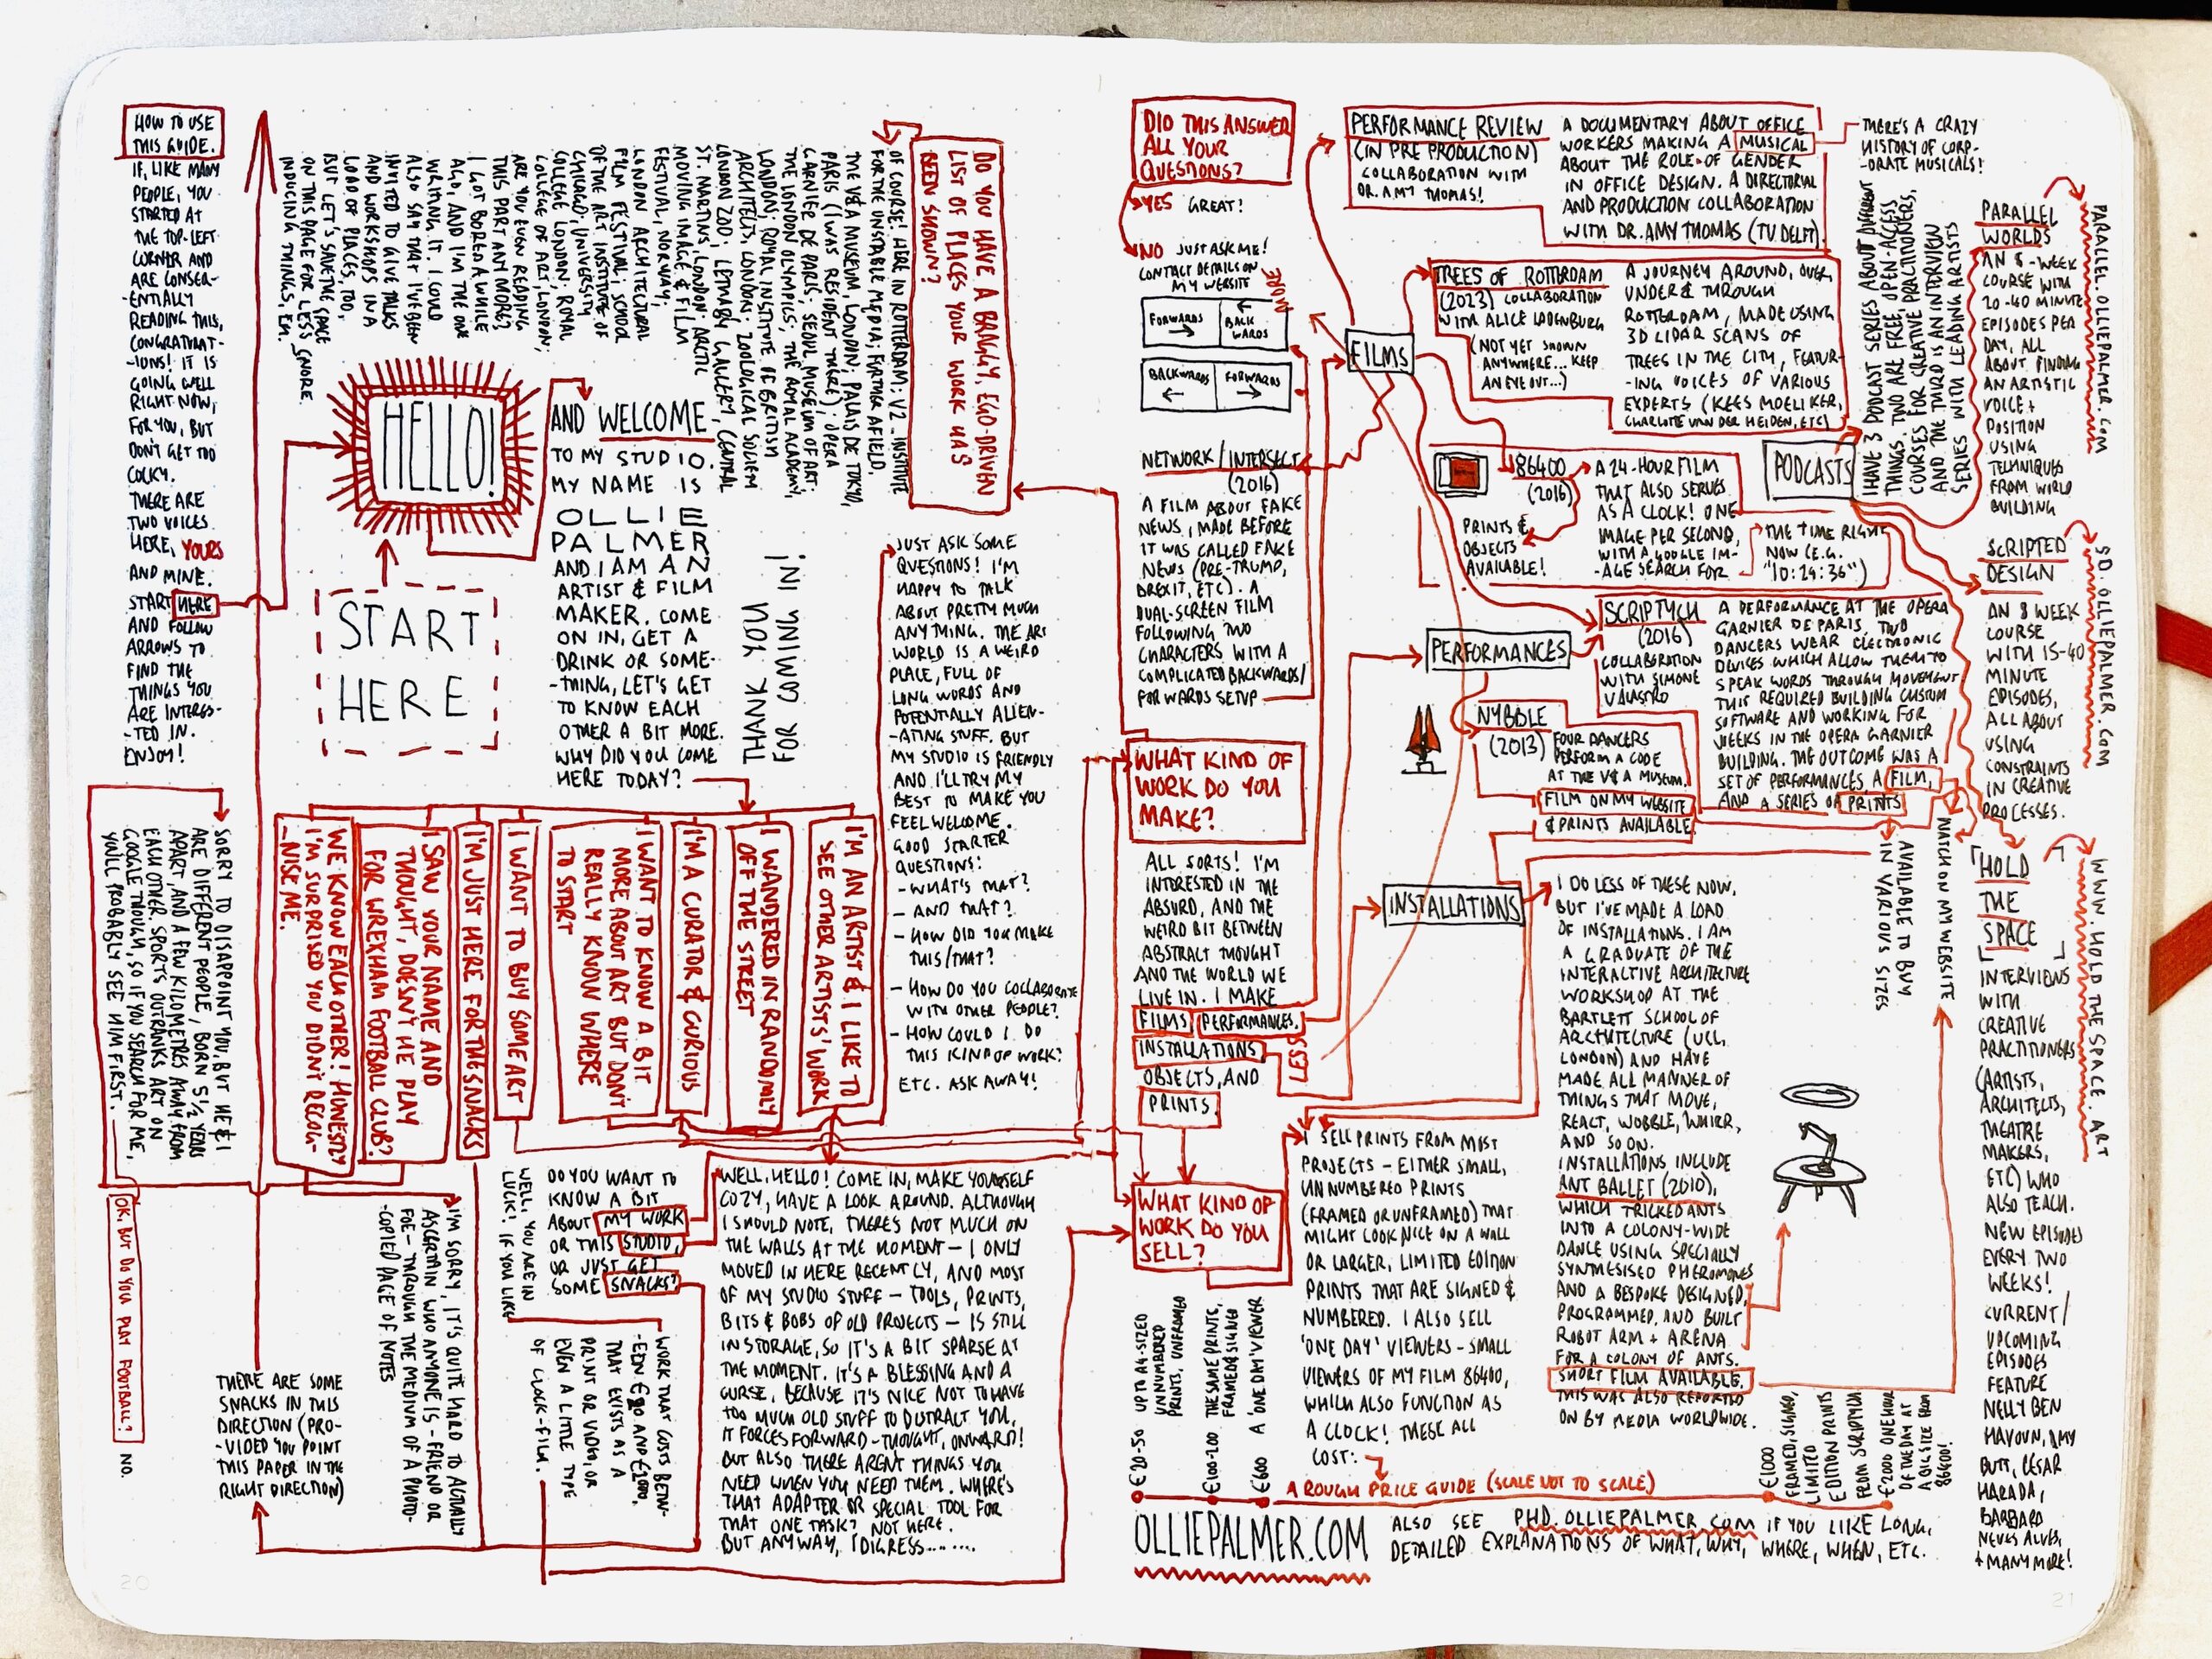 HOW TO USE
THIS GUIDE.
IF, LIKE MANY
PEOPLE, YOU
STARTED AT
THE TOP-LEFT
CORNER AND
ARE CONSEQ-
-ENTIALLY
READING THIS,
CONGRATULAT-
-IONS! IT IS
GOING WELL
RIGHT NOW,
FOR YOU, BUT
DON'T GET TOO
COCKY.
THERE ARE
TWO VOICES
HERE, YOURS
AND MINE.
START HERE
AND FOLLOW
ARROWS TO
FIND THE
THINGS YOU
ARE INTERES-
-TED IN.
ENJOY!
START
HERE
HELLO!
AND WELCOME
TO MY STUDIO.
MY NAME IS
OLLIE
PALMER
AND I AM AN
ARTIST & FILM
MAKER. COME
ON IN, GET A
DRINK OR SOME-
-THING, LET'S GET
TO KNOW EACH
OTHER A BIT MORE.
WHY DID YOU COME
HERE TODAY?
THANK YOU
FOR COMING IN!
DO YOU HAVE A BRAGGY, EGO-DRIVEN
LIST OF PLACES YOUR WORK HAS
BEEN SHOWN?
OF COURSE! HERE IN ROTTERDAM: V2_ INSTITUTE
FOR THE UNSTABLE MEDIA; FURTHER AFIELD,
THE V&A MUSEUM, LONDON; PALAIS DE TOKYO,
PARIS (I WAS RESIDENT THERE); OPERA
GARNIER DE PARIS; SEOUL MUSEUM OF ART;
THE LONDON OLYMPICS; THE ROYAL ACADEMY,
LONDON; ROYAL INSTITUTE OF BRITISH
ARCHITECTS, LONDON; ZOOLOGICAL SOCIETY
LONDON ZOO; LETHABY GALLERY, CENTRAL
ST. MARTINS, LONDON; ARCTIC
MOVING IMAGE & FILM
FESTIVAL, NORWAY;
LONDON ARCHITECTURAL
FILM FESTIVAL; SCHOOL
OF THE ART INSTITUTE OF
CHICAGO; UNIVERSITY
COLLEGE LONDON; ROYAL
COLLEGE OF ART, LONDON;
ARE YOU EVEN READING
THIS PART ANY MORE?
I GOT BORED A WHILE
AGO, AND I'M THE ONE
WRITING IT. I COULD
ALSO SAY THAT I'VE BEEN
INVITED TO GIVE TALKS
AND WORKSHOPS IN A
LOAD OF PLACES, TOO,
BUT LET'S SAVE THE SPACE
ON THIS PAGE FOR LESS SNORE-
INDUCING THINGS, EH.
I'M AN ARTIST & I LIKE TO
SEE OTHER ARTISTS' WORK
I WANDERED IN RANDOMLY
OFF THE STREET
I'M A CURATOR & CURIOUS
I WANT TO KNOW A BIT
MORE ABOUT ART BUT DON'T
REALLY KNOW WHERE
TO START
I WANT TO BUY SOME ART
I'M JUST HERE FOR THE SNACKS
I SAW YOUR NAME AND
THOUGHT, DOESN'T HE PLAY
FOR WREXHAM FOOTBALL CLUB?
WE KNOW EACH OTHER! HONESTLY
I'M SURPRISED YOU DIDN'T RECOG-
-NISE ME.
SORRY TO DISAPPOINT YOU, BUT HE & I
ARE DIFFERENT PEOPLE, BORN 5 1/2 YEARS
APART AND A FEW KILOMETRES AWAY FROM
EACH OTHER. SPORTS OUTRANKS ART ON
GOOGLE THOUGH, SO IF YOU SEARCH FOR ME,
YOU'LL PROBABLY SEE HIM FIRST.
OK, BUT DO YOU PLAY FOOTBALL? NO.
I'M SORRY, IT'S QUITE HARD TO ACTUALLY
ASCERTAIN WHO ANYONE IS - FRIEND OR
FOE - THROUGH THE MEDIUM OF A PHOTO-
-COPIED PAGE OF NOTES
THERE ARE SOME
SNACKS IN THIS
DIRECTION (PRO-
-VIDED YOU POINT
THIS PAPER IN THE
RIGHT DIRECTION)
DO YOU WANT TO
KNOW A BIT
ABOUT MY WORK
OR THIS STUDIO,
OR JUST GET
SOME SNACKS?
WELL, YOU ARE IN
LUCK! IF YOU LIKE
WORK THAT COSTS BETW-
-EEN €20 AND €2000,
THAT EXISTS AS A
PRINT OR VIDEO, OR
EVEN A LITTLE TYPE
OF CLOCK-FILM.
WELL, HELLO! COME IN, MAKE YOURSELF
COZY, HAVE A LOOK AROUND. ALTHOUGH
I SHOULD NOTE, THERE'S NOT MUCH ON
THE WALLS AT THE MOMENT - I ONLY
MOVED IN HERE RECENTLY, AND MOST
OF MY STUDIO STUFF - TOOLS, PRINTS,
BITS & BOBS OF OLD PROJECTS - IS STILL
IN STORAGE, SO IT'S A BIT SPARSE AT
THE MOMENT. IT'S A BLESSING AND A
CURSE, BECAUSE IT'S NICE NOT TO HAVE
TOO MUCH OLD STUFF TO DISTRACT YOU,
IT FORCES FORWARD-THOUGHT, ONWARD!
BUT ALSO THERE AREN'T THINGS YOU
NEED WHEN YOU NEED THEM. WHERE'S
THAT ADAPTER OR SPECIAL TOOL FOR
THAT ONE TASK? NOT HERE.
BUT ANYWAY, I DIGRESS.......
JUST ASK SOME
QUESTIONS! I'M
HAPPY TO TALK
ABOUT PRETTY MUCH
ANYTHING. THE ART
WORLD IS A WEIRD
PLACE, FULL OF
LONG WORDS AND
POTENTIALLY ALIEN-
-ATING STUFF. BUT
MY STUDIO IS FRIENDLY
AND I'LL TRY MY
BEST TO MAKE YOU
FEEL WELCOME.
GOOD STARTER
QUESTIONS:
- WHAT'S THAT?
- AND THAT?
- HOW DID YOU MAKE
THIS/THAT?
- HOW DO YOU COLLABORATE
WITH OTHER PEOPLE?
- HOW COULD I DO
THIS KIND OF WORK?
ETC. ASK AWAY!
20
DID THIS ANSWER
ALL YOUR
QUESTIONS?
YES GREAT!
NO JUST ASK ME!
CONTACT DETAILS ON
MY WEBSITE
MORE
FORWARDS
BACK
WARDS
BACKWARDS
FORWARDS
NETWORK / INTERSECT
(2016)
A FILM ABOUT FAKE
NEWS, MADE BEFORE
IT WAS CALLED FAKE
NEWS (PRE-TRUMP,
BREXIT, ETC). A
DUAL-SCREEN FILM
FOLLOWING TWO
CHARACTERS WITH A
COMPLICATED BACKWARDS/
FORWARDS SETUP
WHAT KIND OF
WORK DO YOU
MAKE?
ALL SORTS! I'M
INTERESTED IN THE
ABSURD, AND THE
WEIRD BIT BETWEEN
ABSTRACT THOUGHT
AND THE WORLD WE
LIVE IN. I MAKE
FILMS PERFORMANCES,
INSTALLATIONS
OBJECTS, AND
PRINTS.
LESS
WHAT KIND OF
WORK DO YOU
SELL?
I SELL PRINTS FROM MOST
PROJECTS - EITHER SMALL,
UNNUMBERED PRINTS
(FRAMED OR UNFRAMED) THAT
MIGHT LOOK NICE ON A WALL
OR LARGER, LIMITED EDITION
PRINTS THAT ARE SIGNED &
NUMBERED. I ALSO SELL
'ONE DAY' VIEWERS - SMALL
VIEWERS OF MY FILM 86400,
WHICH ALSO FUNCTION AS
A CLOCK! THESE ALL
COST:
A ROUGH PRICE GUIDE (SCALE NOT TO SCALE)
€20-50 UP TO A4-SIZED
UNNUMBERED
PRINTS, UNFRAMED
€100-200 THE SAME PRINTS,
FRAMED & SIGNED
€600 A 'ONE DAY' VIEWER
€1000 FRAMED, SIGNED,
LIMITED
EDITION PRINTS
FROM SCRIPTYCH
€2000 ONE HOUR
OF THE DAY AT
A OIL SIZE FROM
86400!
OLLIEPALMER.COM
ALSO SEE PHD.OLLIEPALMER.COM IF YOU LIKE LONG,
DETAILED EXPLANATIONS OF WHAT, WHY, WHERE, WHEN, ETC.
FILMS
PERFORMANCE REVIEW
(IN PRE PRODUCTION)
COLLABORATION WITH
DR. AMY THOMAS!
A DOCUMENTARY ABOUT OFFICE
WORKERS MAKING A MUSICAL
ABOUT THE ROLE OF GENDER
IN OFFICE DESIGN. A DIRECTORIAL
AND PRODUCTION COLLABORATION
WITH DR. AMY THOMAS (TU DELFT).
THERE'S A CRAZY
HISTORY OF CORP-
-ORATE MUSICALS!
TREES OF ROTTERDAM
(2023) COLLABORATION
WITH ALICE LADENBURG
(NOT YET SHOWN
ANYWHERE... KEEP
AN EYE OUT...)
A JOURNEY AROUND, OVER,
UNDER & THROUGH
ROTTERDAM, MADE USING
3D LIDAR SCANS OF
TREES IN THE CITY, FEATUR-
-ING VOICES OF VARIOUS
EXPERTS (KEES MOELIKER,
CHARLOTTE VAN DER HEIDEN, ETC)
86400
(2016)
PRINTS &
OBJECTS
AVAILABLE!
A 24-HOUR FILM
THAT ALSO SERVES
AS A CLOCK! ONE
IMAGE PER SECOND,
WITH A GOOGLE IM-
-AGE SEARCH FOR
THE TIME RIGHT
NOW (E.G.
"10:29:36")
PERFORMANCES
SCRIPTYCH
(2016)
COLLABORATION
WITH SIMONE
VALASTRO
A PERFORMANCE AT THE OPERA
GARNIER DE PARIS. TWO
DANCERS WEAR ELECTRONIC
DEVICES WHICH ALLOW THEM TO
SPEAK WORDS THROUGH MOVEMENT
THIS REQUIRED BUILDING CUSTOM
SOFTWARE AND WORKING FOR
WEEKS IN THE OPERA GARNIER
BUILDING. THE OUTCOME WAS A
SET OF PERFORMANCES, A FILM,
AND A SERIES OF PRINTS
AVAILABLE TO BUY
IN VARIOUS SIZES
WATCH ON MY WEBSITE
NYBBLE
(2013)
FOUR DANCERS
PERFORM A CODE
AT THE V&A MUSEUM.
FILM ON MY WEBSITE
& PRINTS AVAILABLE
INSTALLATIONS
I DO LESS OF THESE NOW,
BUT I'VE MADE A LOAD
OF INSTALLATIONS. I AM
A GRADUATE OF THE
INTERACTIVE ARCHITECTURE
WORKSHOP AT THE
BARTLETT SCHOOL OF
ARCHITECTURE (UCL,
LONDON) AND HAVE
MADE ALL MANNER OF
THINGS THAT MOVE,
REACT, WOBBLE, WHIRR,
AND SO ON.
INSTALLATIONS INCLUDE
ANT BALLET (2010),
WHICH TRICKED ANTS
INTO A COLONY-WIDE
DANCE USING SPECIALLY
SYNTHESISED PHEROMONES
AND A BESPOKE DESIGNED,
PROGRAMMED, AND BUILT
ROBOT ARM + ARENA
FOR A COLONY OF ANTS.
SHORT FILM AVAILABLE.
THIS WAS ALSO REPORTED
ON BY MEDIA WORLDWIDE.
PODCASTS
I HAVE 3 PODCAST SERIES ABOUT DIFFERENT
THINGS. TWO ARE FREE, OPEN-ACCESS
COURSES FOR CREATIVE PRACTITIONERS,
AND THE THIRD IS AN INTERVIEW
SERIES WITH LEADING ARTISTS
PARALLEL
WORLDS
AN 8-WEEK
COURSE WITH
20-40 MINUTE
EPISODES PER
DAY, ALL
ABOUT FINDING
AN ARTISTIC
VOICE +
POSITION
USING
TECHNIQUES
FROM WORLD
BUILDING
PARALLEL.OLLIEPALMER.COM
SCRIPTED
DESIGN
AN 8 WEEK
COURSE
WITH 15-40
MINUTE
EPISODES,
ALL ABOUT
USING
CONSTRAINTS
IN CREATIVE
PROCESSES.
SD.OLLIEPALMER.COM
[HOLD
THE
SPACE]
INTERVIEWS
WITH
CREATIVE
PRACTITIONERS
(ARTISTS,
ARCHITECTS,
THEATRE
MAKERS,
ETC) WHO
ALSO TEACH.
NEW EPISODES
EVERY TWO
WEEKS!
CURRENT/
UPCOMING
EPISODES
FEATURE
NELLY BEN
HAYOUN, AMY
BUTT, CÉSAR
HARADA,
BARBARO
NEVES ALVES,
+ MANY MORE!
WWW.HOLD THE SPACE.ART
21